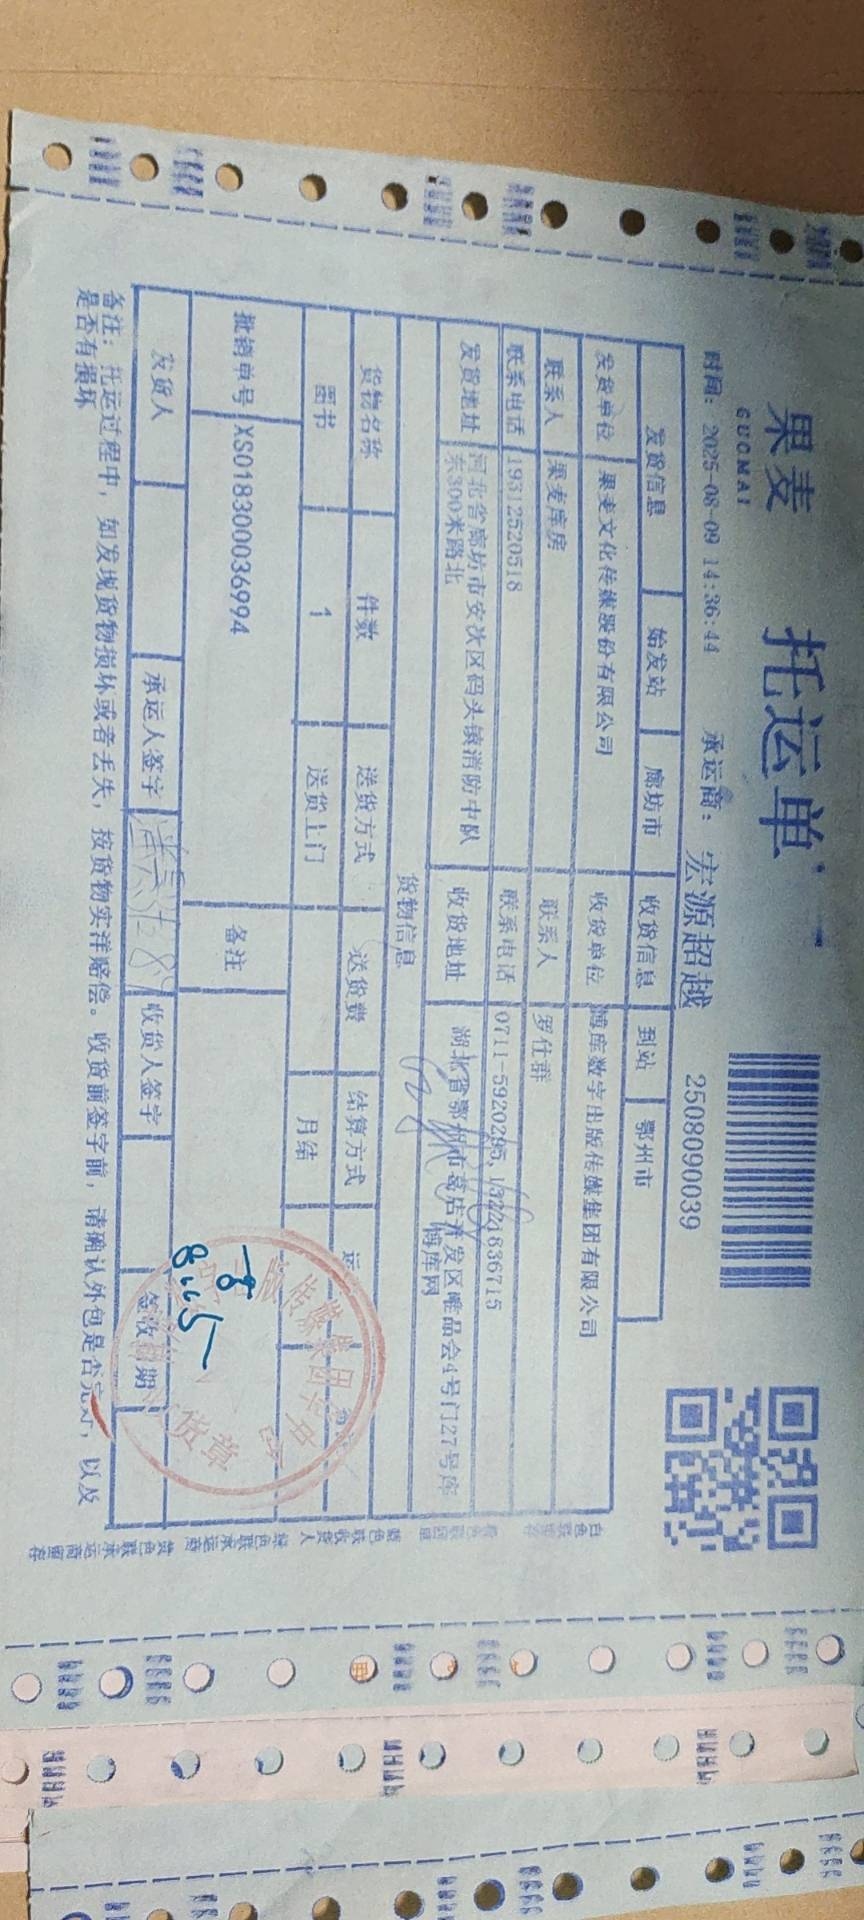 果麦
GUOMAI
托运单
时间: 2025-08-09 14:36:44 承运商: 宏源超越 2508090039
发货信息 始发站 廊坊市 收货信息 到站 鄂州市
发货单位 果麦文化传媒股份有限公司 收货单位 博库数字出版传媒集团有限公司
联系人 果麦库房 联系人 罗仕群
联系电话 19312520518 联系电话 0711-5920295, 836715
发货地址 河北省廊坊市安次区码头镇消防中队东300米路北 收货地址 湖北省鄂州市葛店开发区唯品会4号门27号库博库网
货物信息
货物名称 件数 送货方式 送货费 结算方式 运
图书 1 送货上门 月结
批销单号 XS018300036994 备注
发货人 承运人签字 收货人签字 签收日期
8.15
备注: 托运过程中, 如发现货物损坏或者丢失, 按货物实洋赔偿。收货前签字前, 请确认外包是否完好, 以及
是否有损坏
版传媒集团
收货章